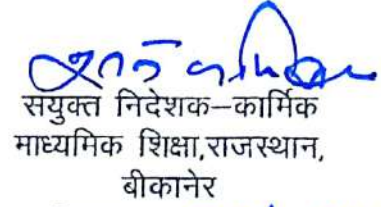 सयुक्त निदेशक–कार्मिक
माध्यमिक शिक्षा,राजस्थान,
बीकानेर